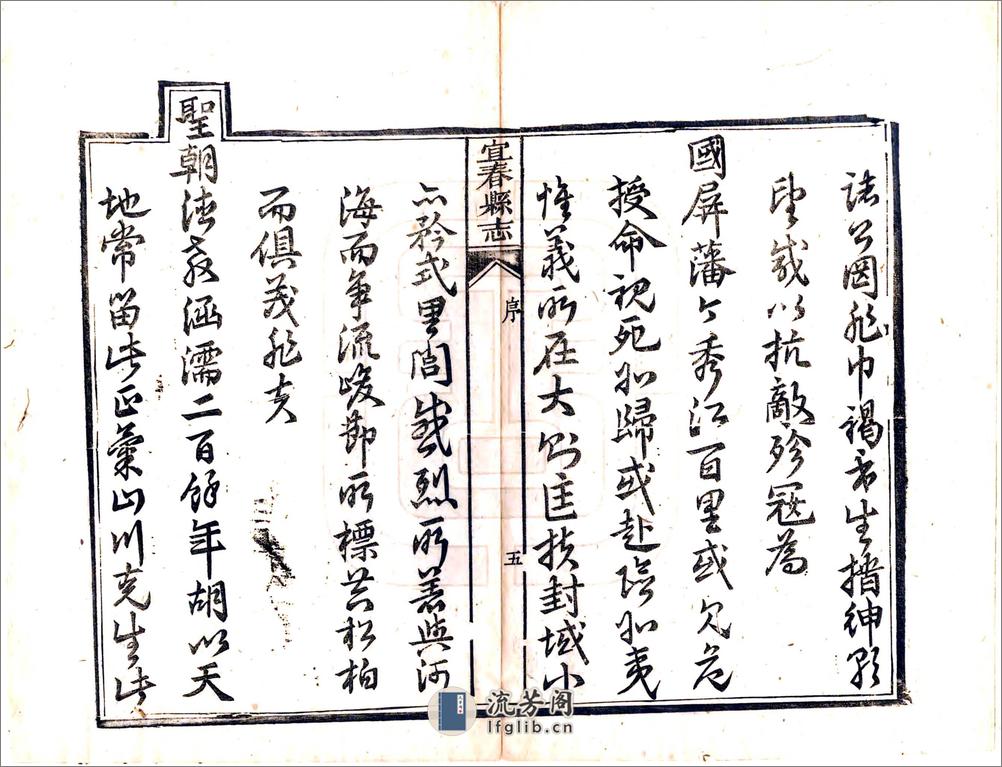 諸公罔非巾褐書生搢紳碩
望咸以抗敵殄寇為
國屏藩今秀江百里或見危
授命視死如歸或赴險如夷
惟義所在大則匡扶封域小
宜春縣志
序
五
亦矜式里閭盛烈所著與河
海而爭流峻節所標共松柏
而俱茂非夫
聖朝德教涵濡二百餘年胡以天
地常留此正氣山川克生此
流芳阁
lfglib.cn